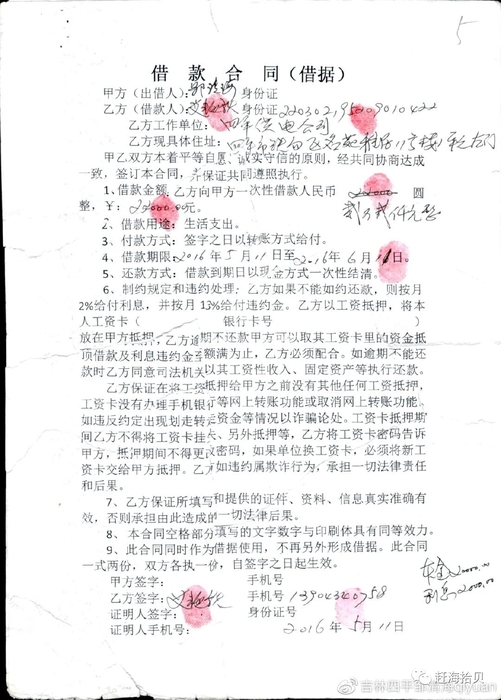 5
借 款 合 同（借据）
甲方（出借人）： 身份证
乙方（借款人）： 身份证
乙方工作单位：四平供电公司
乙方现具体住址：
甲乙双方本着平等自愿、诚实守信的原则，经共同协商达成
一致，签订本合同，并保证共同遵照执行。
1、借款金额：乙方向甲方一次性借款人民币 圆
整，¥： 元。
贰万贰仟元整
2、借款用途：生活支出。
3、付款方式：签字之日以转账方式给付。
4、借款期限：2016年5月11日至2016年6月11日。
5、还款方式：借款到期日以现金方式一次性结清。
6、制约规定和违约处理：乙方如果不能如约还款，则按月
2%给付利息，并按月13%给付违约金。乙方以工资抵押，将本
人工资卡（ 银行卡号 ）
放在甲方抵押，乙方逾期不还款甲方可以取其工资卡里的资金抵
顶借款及利息违约金至额满为止，乙方必须配合。如逾期不能还
款时乙方同意司法机关以其工资性收入、固定资产等执行还款。
乙方保证在将工资抵押给甲方之前没有其他任何工资抵押，
工资卡没有办理手机银行等网上转账功能或取消网上转账功能。
如违反约定出现划走转走资金等情况以诈骗论处。工资卡抵押期
间乙方不得将工资卡挂失、另外抵押等，乙方将工资卡密码告诉
甲方，抵押期间不得更改密码，如果单位换工资卡，必须将新工
资卡交给甲方抵押。乙方如违约属欺诈行为，承担一切法律责任
和后果。
7、乙方保证所填写和提供的证件、资料、信息真实准确有
效，否则承担由此造成的一切法律后果。
8、本合同空格部分填写的文字数字与印刷体具有同等效力。
9、此合同同时作为借据使用，不再另外形成借据。此合同
一式两份，双方各执一份，自签字之日起生效。
本金20000.00
利息2000.00
甲方签字： 手机号
乙方签字： 手机号 13904340758
证明人签字： 身份证号
证明人手机号： 2016年5月11日
赶海拾贝